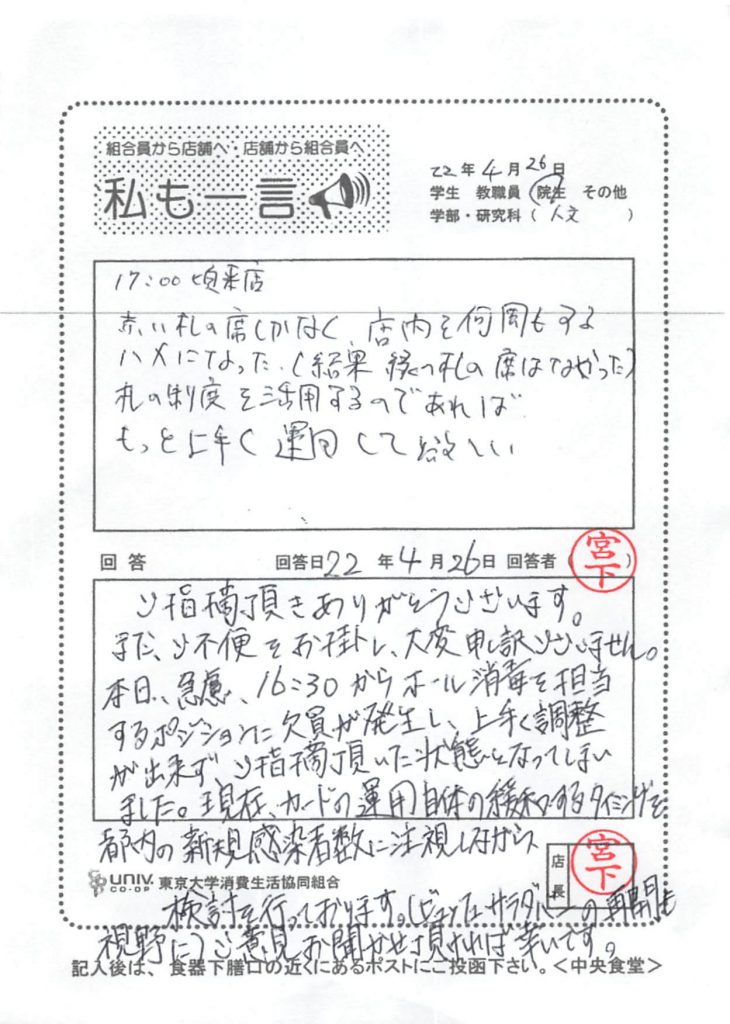 組合員から店舗へ・店舗から組合員へ
私も一言
22年4月26日
学生 教職員 院生 その他
学部・研究科( 人文 )
17:00頃来店
赤い札の席しかなく、店内を何周もする
ハメになった。(結果 緑の札の席はなかった)
札の制度を活用するのであれば
もっと上手く運用して欲しい
回答 回答日22年4月26日 回答者(宮下)
ご指摘頂きありがとうございます。
また、ご不便をお掛けし、大変申し訳ございません。
本日、急遽、16:30からホール消毒を担当
するポジションに欠員が発生し、上手く調整
が出来ず、ご指摘頂いた状態となってしまい
ました。現在、カードの運用自体の緩和するタイミングを
都内の新規感染者数に注視しながら
店長 宮下
UNIV. CO-OP 東京大学消費生活協同組合
検討を行っております。(ビュッフェサラダバーの再開も
視野に)ご意見お聞かせ頂ければ幸いです。
記入後は、食器下膳口の近くにあるポストにご投函下さい。<中央食堂>